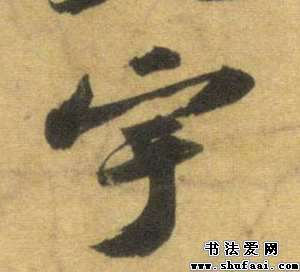 宇
书法爱网
www.shufaai.com